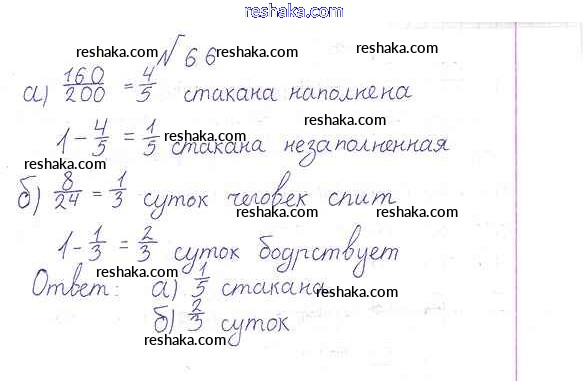 reshaka.com
№ 66
reshaka.com reshaka.com reshaka.com
а) 160/200 = 4/5 стакана наполнена
reshaka.com reshaka.com
1 - 4/5 = 1/5 стакана незаполненная
reshaka.com reshaka.com
б) 8/24 = 1/3 суток человек спит
reshaka.com reshaka.com
1 - 1/3 = 2/3 суток бодрствует
reshaka.com reshaka.com
Ответ: а) 1/5 стакана
reshaka.com
б) 2/3 суток
reshaka.com reshaka.com